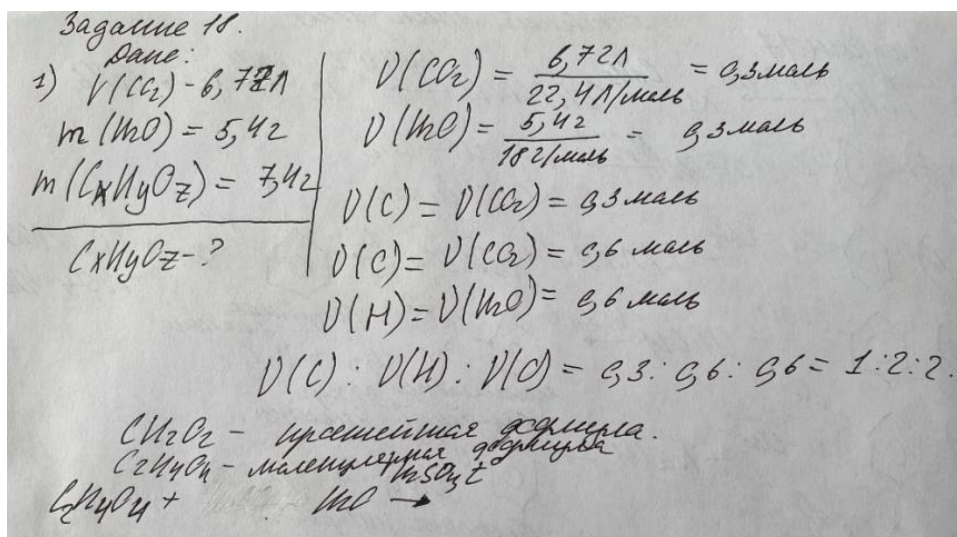 Задание 18.
Дано:
1) V(CO2) - 6,72л
m(H2O) = 5,4г
m(CxHyOz) = 7,4г
CxHyOz - ?
ν(CO2) = 6,72л / 22,4л/моль = 0,3моль
ν(H2O) = 5,4г / 18г/моль = 0,3моль
ν(C) = ν(CO2) = 0,3моль
ν(C) = ν(CO2) = 0,6 моль
ν(H) = ν(H2O) = 0,6 моль
ν(C) : ν(H) : ν(O) = 0,3 : 0,6 : 0,6 = 1:2:2.
CH2O2 - простейшая формула.
C2H4O4 - молекулярная формула
H2SO4 t
C2H4O4 + H2O →